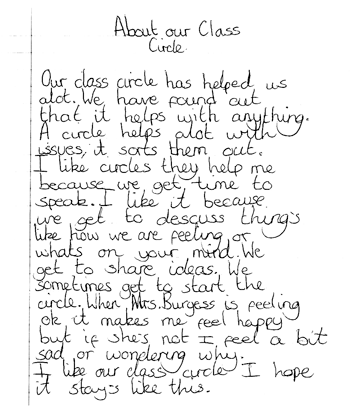 About our Class
Circle.
Our class circle has helped us
alot. We have found out
that it helps with anything.
A circle helps alot with
issues, it sorts them out.
I like circles they help me
because we get time to
speak. I like it because
we get to descuss thing's
like how we are feeling or
whats on your mind. We
get to share ideas. We
sometimes get to start the
circle. When Mrs. Burgess is feeling
ok it makes me feel happy
but if she's not I feel a bit
sad or wondering why.
I like our class circle I hope
it stay's like this.